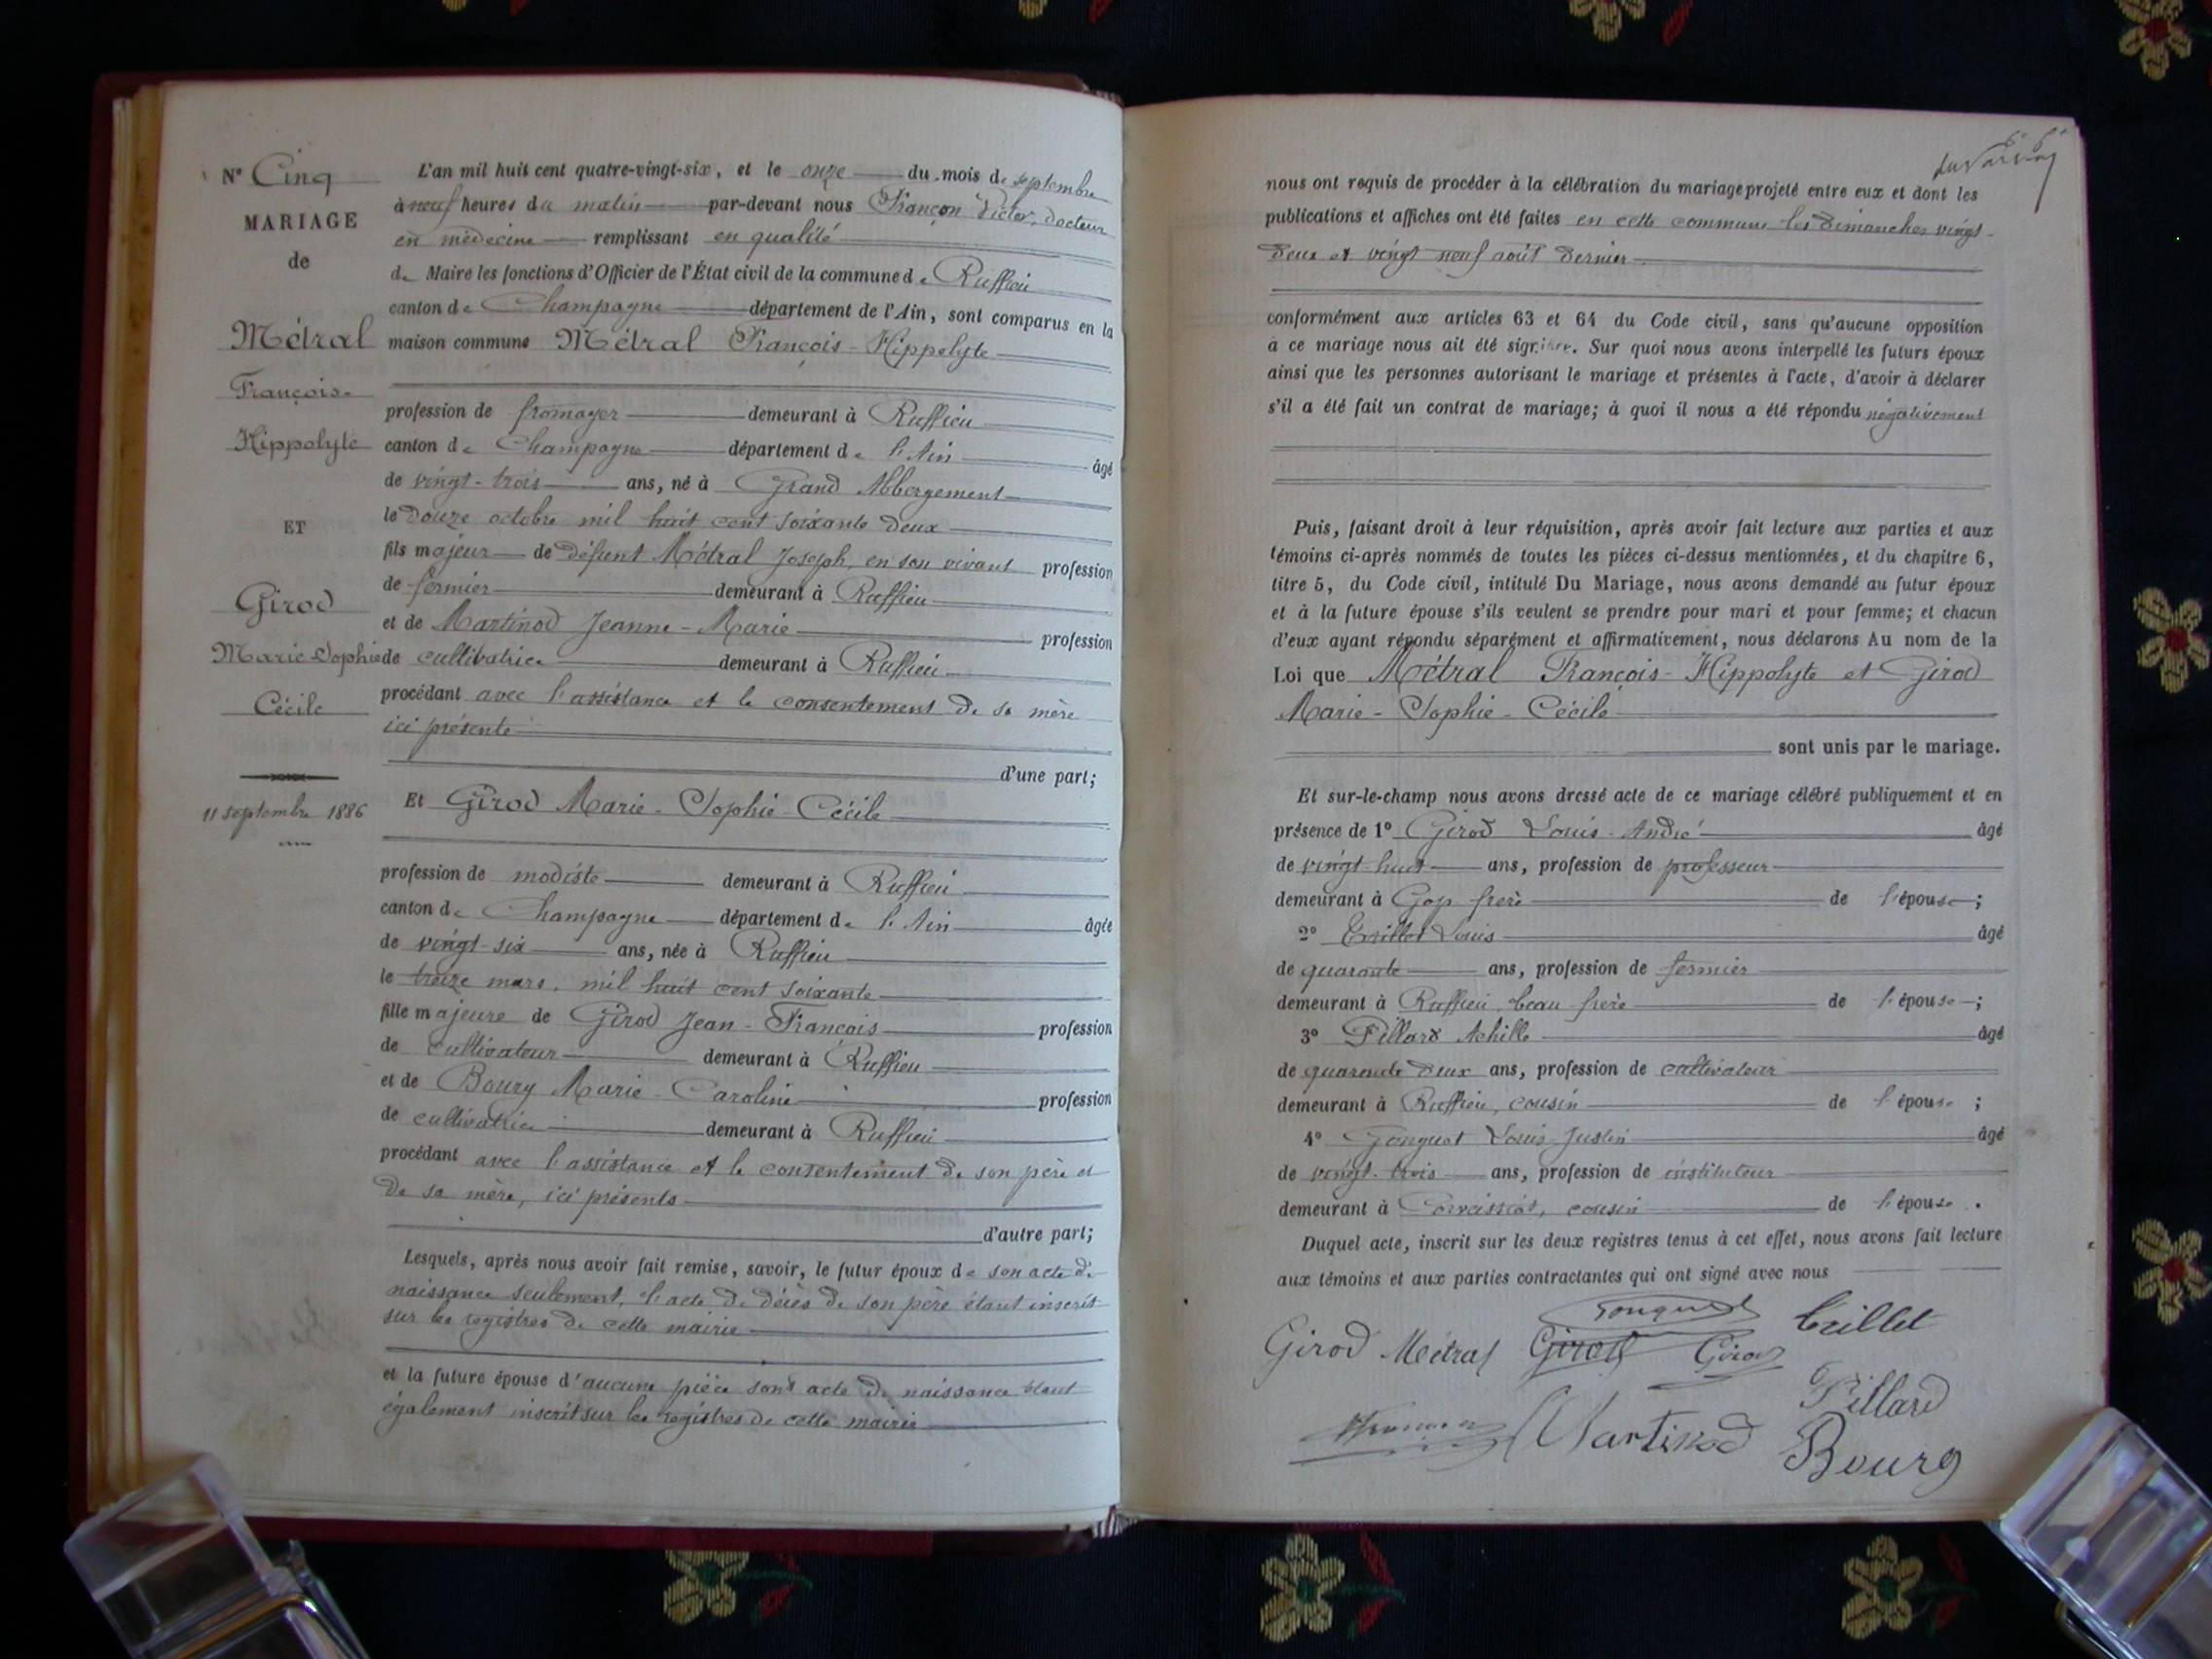 N° Cinq
MARIAGE
de
Métral
François-
Hippolyte
ET
Girod
Marie Sophie
Cécile
11 septembre 1886
L'an mil huit cent quatre-vingt-six, et le onze du mois de septembre
à neuf heures du matin par-devant nous Françon Victor, docteur
en médecine remplissant en qualité
de Maire les fonctions d'Officier de l'État civil de la commune de Ruffieu
canton de Champagne département de l'Ain, sont comparus en la
maison commune Métral François-Hippolyte
profession de fromager demeurant à Ruffieu
canton de Champagne département de l'Ain âgé
de vingt-trois ans, né à Grand Abbergement
le douze octobre mil huit cent soixante deux
fils majeur de défunt Métral Joseph, en son vivant profession
de fermier demeurant à Ruffieu
et de Martinod Jeanne-Marie profession
de cultivatrice demeurant à Ruffieu
procédant avec l'assistance et le consentement de sa mère
ici présente
d'une part;
Et Girod Marie-Sophie-Cécile
profession de modiste demeurant à Ruffieu
canton de Champagne département de l'Ain âgée
de vingt-six ans, née à Ruffieu
le treize mars, mil huit cent soixante
fille majeure de Girod Jean-François profession
de cultivateur demeurant à Ruffieu
et de Bourg Marie-Caroline profession
de cultivatrice demeurant à Ruffieu
procédant avec l'assistance et le consentement de son père et
de sa mère, ici présents
d'autre part;
Lesquels, après nous avoir fait remise, savoir, le futur époux de son acte de
naissance seulement, l'acte de décès de son père étant inscrit
sur les registres de cette mairie
et la future épouse d'aucune pièce son acte de naissance étant
également inscrit sur les registres de cette mairie
nous ont requis de procéder à la célébration du mariage projeté entre eux et dont les
publications et affiches ont été faites en cette commune les dimanches vingt-
deux et vingt neuf août dernier
conformément aux articles 63 et 64 du Code civil, sans qu'aucune opposition
à ce mariage nous ait été signifiée. Sur quoi nous avons interpellé les futurs époux
ainsi que les personnes autorisant le mariage et présentes à l'acte, d'avoir à déclarer
s'il a été fait un contrat de mariage; à quoi il nous a été répondu négativement
Puis, faisant droit à leur réquisition, après avoir fait lecture aux parties et aux
témoins ci-après nommés de toutes les pièces ci-dessus mentionnées, et du chapitre 6,
titre 5, du Code civil, intitulé Du Mariage, nous avons demandé au futur époux
et à la future épouse s'ils veulent se prendre pour mari et pour femme; et chacun
d'eux ayant répondu séparément et affirmativement, nous déclarons Au nom de la
Loi que Métral François-Hippolyte et Girod
Marie-Sophie-Cécile
sont unis par le mariage.
Et sur-le-champ nous avons dressé acte de ce mariage célébré publiquement et en
présence de 1° Girod Louis-André âgé
de vingt-huit ans, profession de professeur
demeurant à Gap frère de l'épouse;
2° Trillet Louis âgé
de quarante ans, profession de fermier
demeurant à Ruffieu, beau frère de l'épouse;
3° Pillard Achille âgé
de quarante deux ans, profession de cultivateur
demeurant à Ruffieu, cousin de l'épouse;
4° Gonguet Louis-Justin âgé
de vingt-trois ans, profession de instituteur
demeurant à cousin de l'épouse.
Duquel acte, inscrit sur les deux registres tenus à cet effet, nous avons fait lecture
aux témoins et aux parties contractantes qui ont signé avec nous
Gonguet
Girod Métral Girod Girod Trillet
Pillard
Martinod Bourg